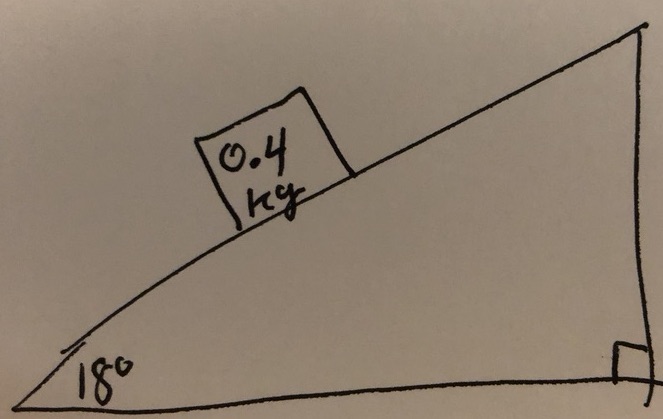 0.4
kg
18°